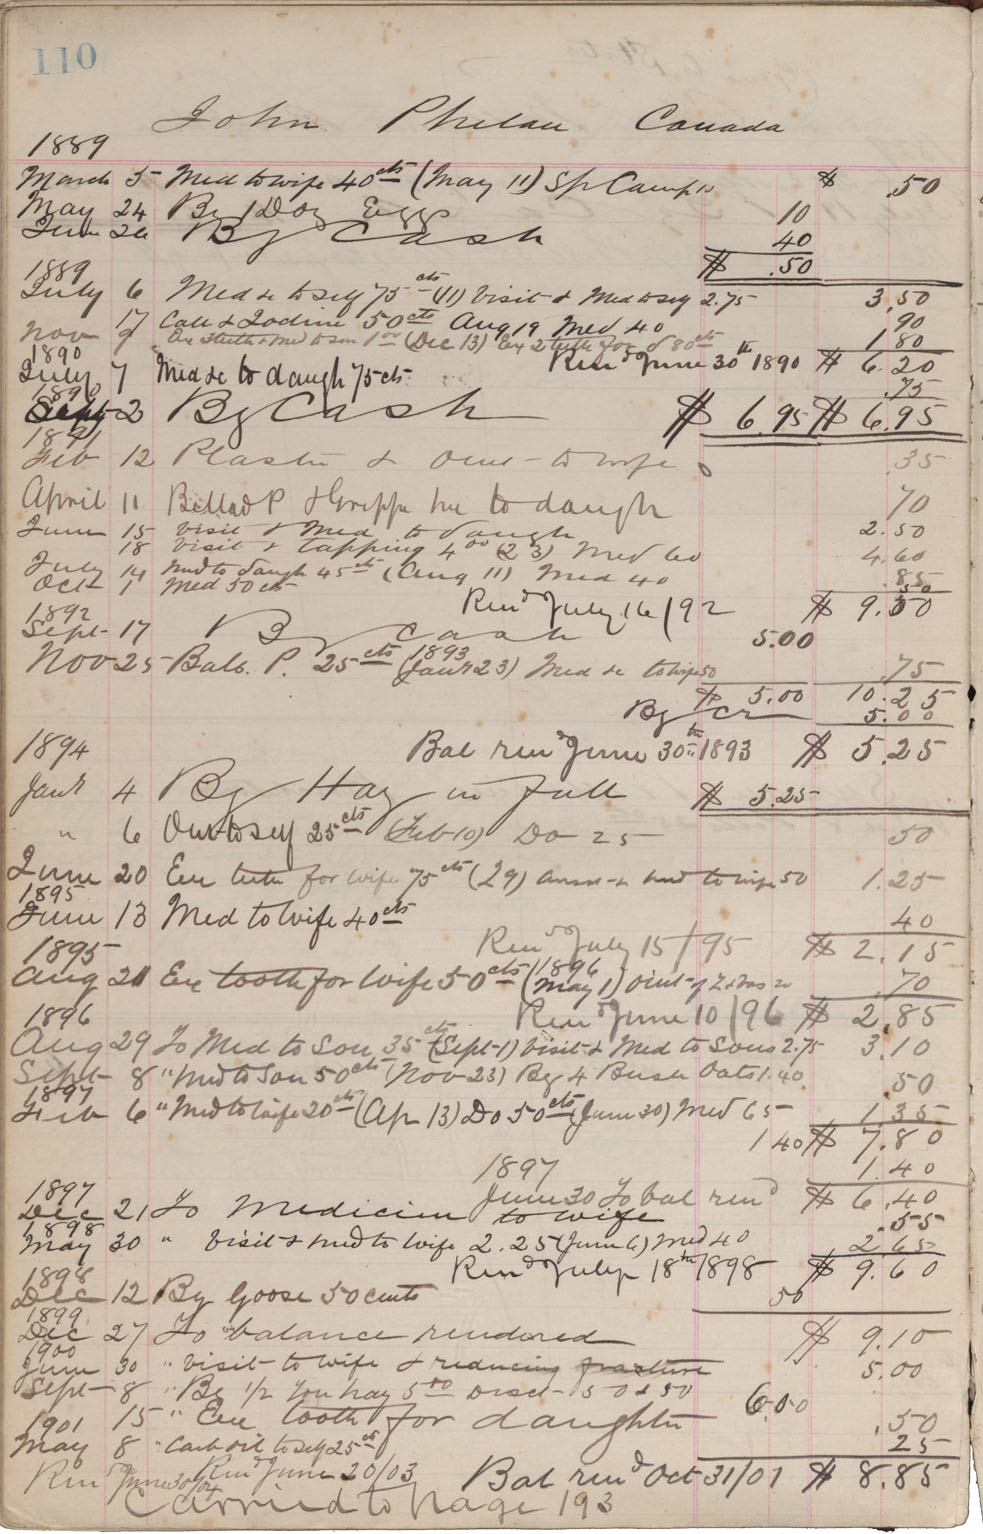 110
John Phelan Canada
1889
March 5 Med to wife 40cts (May 11) Sp Camp 10 $ .50
May 24 By 1 Doz Eggs 10
June 26 By Cash 40
$ .50
1889
July 6 Med &c to self 75cts (11) Visit & Med to self 2.75 3.50
17 Calc & Iodine 50cts Aug 19 Med 40 90
Nov 9 Ex 3 teeth & Med to son 1.00 (Dec 13) Ex 2 teeth for d 80cts 1 80
1890 Rend June 30th 1890 $ 6.20
July 7 Med &c to daugh 75cts .75
1890
Sept 2 By Cash $ 6.95 $ 6.95
1891
Feb 12 Plaster & Oint to wife .35
April 11 Bellad P & Grippe to daugh 70
June 15 Visit & Med to daugh 2.50
18 Visit & tapping 4.00 (23) Med 60 4.60
July 14 Med to daugh 45cts (Aug 11) Med 40 .85
Oct 1 Med 50cts 50
Rend July 16/92 $ 9.50
1892
Sept 17 By Cash 5.00
Nov 25 Bals. P. 25cts (1893 Janr 23) Med &c to wife 50 .75
$ 5.00 10.25
By Cr 5.00
1894 Bal rend June 30th 1893 $ 5.25
Janr 4 By Hay in full $ 5.25
" 6 Oint to self 25cts (Feb 10) Do 25 50
June 20 Ex teeth for wife 75cts (29) & Med to wife 50 1.25
1895
June 13 Med to wife 40cts 40
Rend July 15/95 $ 2.15
1895
Aug 21 Ex tooth for wife 50cts (1896 May 1) Oint of Z & 20 .70
1896 Rend June 10/96 $ 2.85
Aug 29 To Med to Son 35cts (Sept 1) Visit & Med to Sons 2.75 3.10
Sept 8 " Med to Son 50cts (Nov 23) By 4 Bush Oats 1.40 .50
1897
Feb 6 " Med to wife 20cts (Ap 13) Do 50cts (June 30) Med 65 1.35
1 40 $ 7.80
1.40
1897
June 30 To bal rend $ 6.40
1897
Dec 21 To Medicine to wife .55
1898
May 30 " Visit & Med to wife 2.25 (June 6) Med 40 2.65
Rend July 18th 1898 $ 9.60
1898
Dec 12 By Goose 50 cents 50
1899
Dec 27 To balance rendered $ 9.10
1900
June 30 " Visit to wife & reducing fracture 5.00
Sept 8 " By 1/2 Ton hay 5.00 Disct 50 & 50 6.00
15 " Exe tooth for daughter .50
1901
May 8 " Carb oil to self 25cts 25
Rend June 30/04 Rend June 20/03 Bal rend Oct 31/01 $ 8.85
Carried to page 193